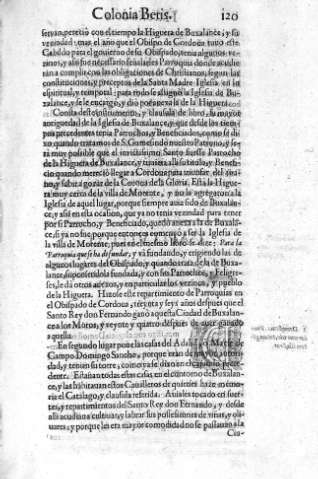 Colonia Betis. 120
servan, perdió con el tiempo la Higuera de Buxalance, y su
vezindad: mas el año que el Obispo de Cordova tuvo este
Cabildo para el govierno de su Obispado, tenia algunos ve-
zinos, y assi fue necessario señalarles Parroquia donde acudie-
ran a cumplir con las obligaciones de Christianos, segun las
constituciones, y preceptos de la Santa Madre Iglesia en lo
espiritual, y temporal: para todo se assignò la Iglesia de Bu-
xalance, y se le encargò, y diò possession de la de la Higuera.
Consta deste instrumento, y clausula de libro, la mayor
antiguedad de la Iglesia de Buxalance, y que desde los tiem-
pos precedentes tenia Parrochos, y Beneficiados, como se di-
xo quando tratamos de S. Gomesindo nuestro Patrono, y se-
rà muy possible que el invictissimo Santo fuesse Parrocho
de la Higuera de Buxalance, y tuviera alli su titulo, y Benefi-
cio quando mereciò llegar a Cordova para triunfar del
mundo, y subir a gozar de la Corona de la Gloria. Està la Higue-
ra muy cerca de la villa de Morente, y no la agregaron a la
Iglesia de aquel lugar, porque siempre avia sido de Buxalan-
ce, y assi en esta ocasion, que ya no tenia vezindad para tener
por si Parrocho, y Beneficiado, quedò anexa a la de Buxalan-
ce, si ya no fue, porque entonces començò a ser la Iglesia de
la villa de Morente, pues en el mesmo libro se dize: Para la
Parroquia que se ha de fundar, y và fundando, y erigiendo las de
algunos lugares del Obispado, y quando trata de la de Buxa-
lance, suponiendola fundada, y con sus Parrochos, y Feligre-
ses, le dà otros anexos, y en particular los vezinos, y pueblo
de la Higuera. Hizose este repartimiento de Parroquias en
el Obispado de Cordova, treynta y seys años despues que el
Santo Rey don Fernando ganò a questa Ciudad de Buxalan-
ce a los Moros, y veynte y quatro despues de aver ganado
a Sevilla.
En segundo lugar pone las casas del
Campo Domingo Sancho, porque eran de
dad, y tenian su torre, como ya se dixo en el capitulo prece-
dente. Estavan todas estas casas en el contorno de Buxalan-
ce, y las habitavan estos Cavalleros de quienes haze memo-
ria el Catalogo, y clausula referida. Aviales tocado en suer-
tes, y repartimientos del Santo Rey don Fernando, y desde
alli acudian a cultivar, y labrar sus possessiones de viñas, y oli-
vares, y porque les era mayor comodidad no se passavan a la
Ciu-